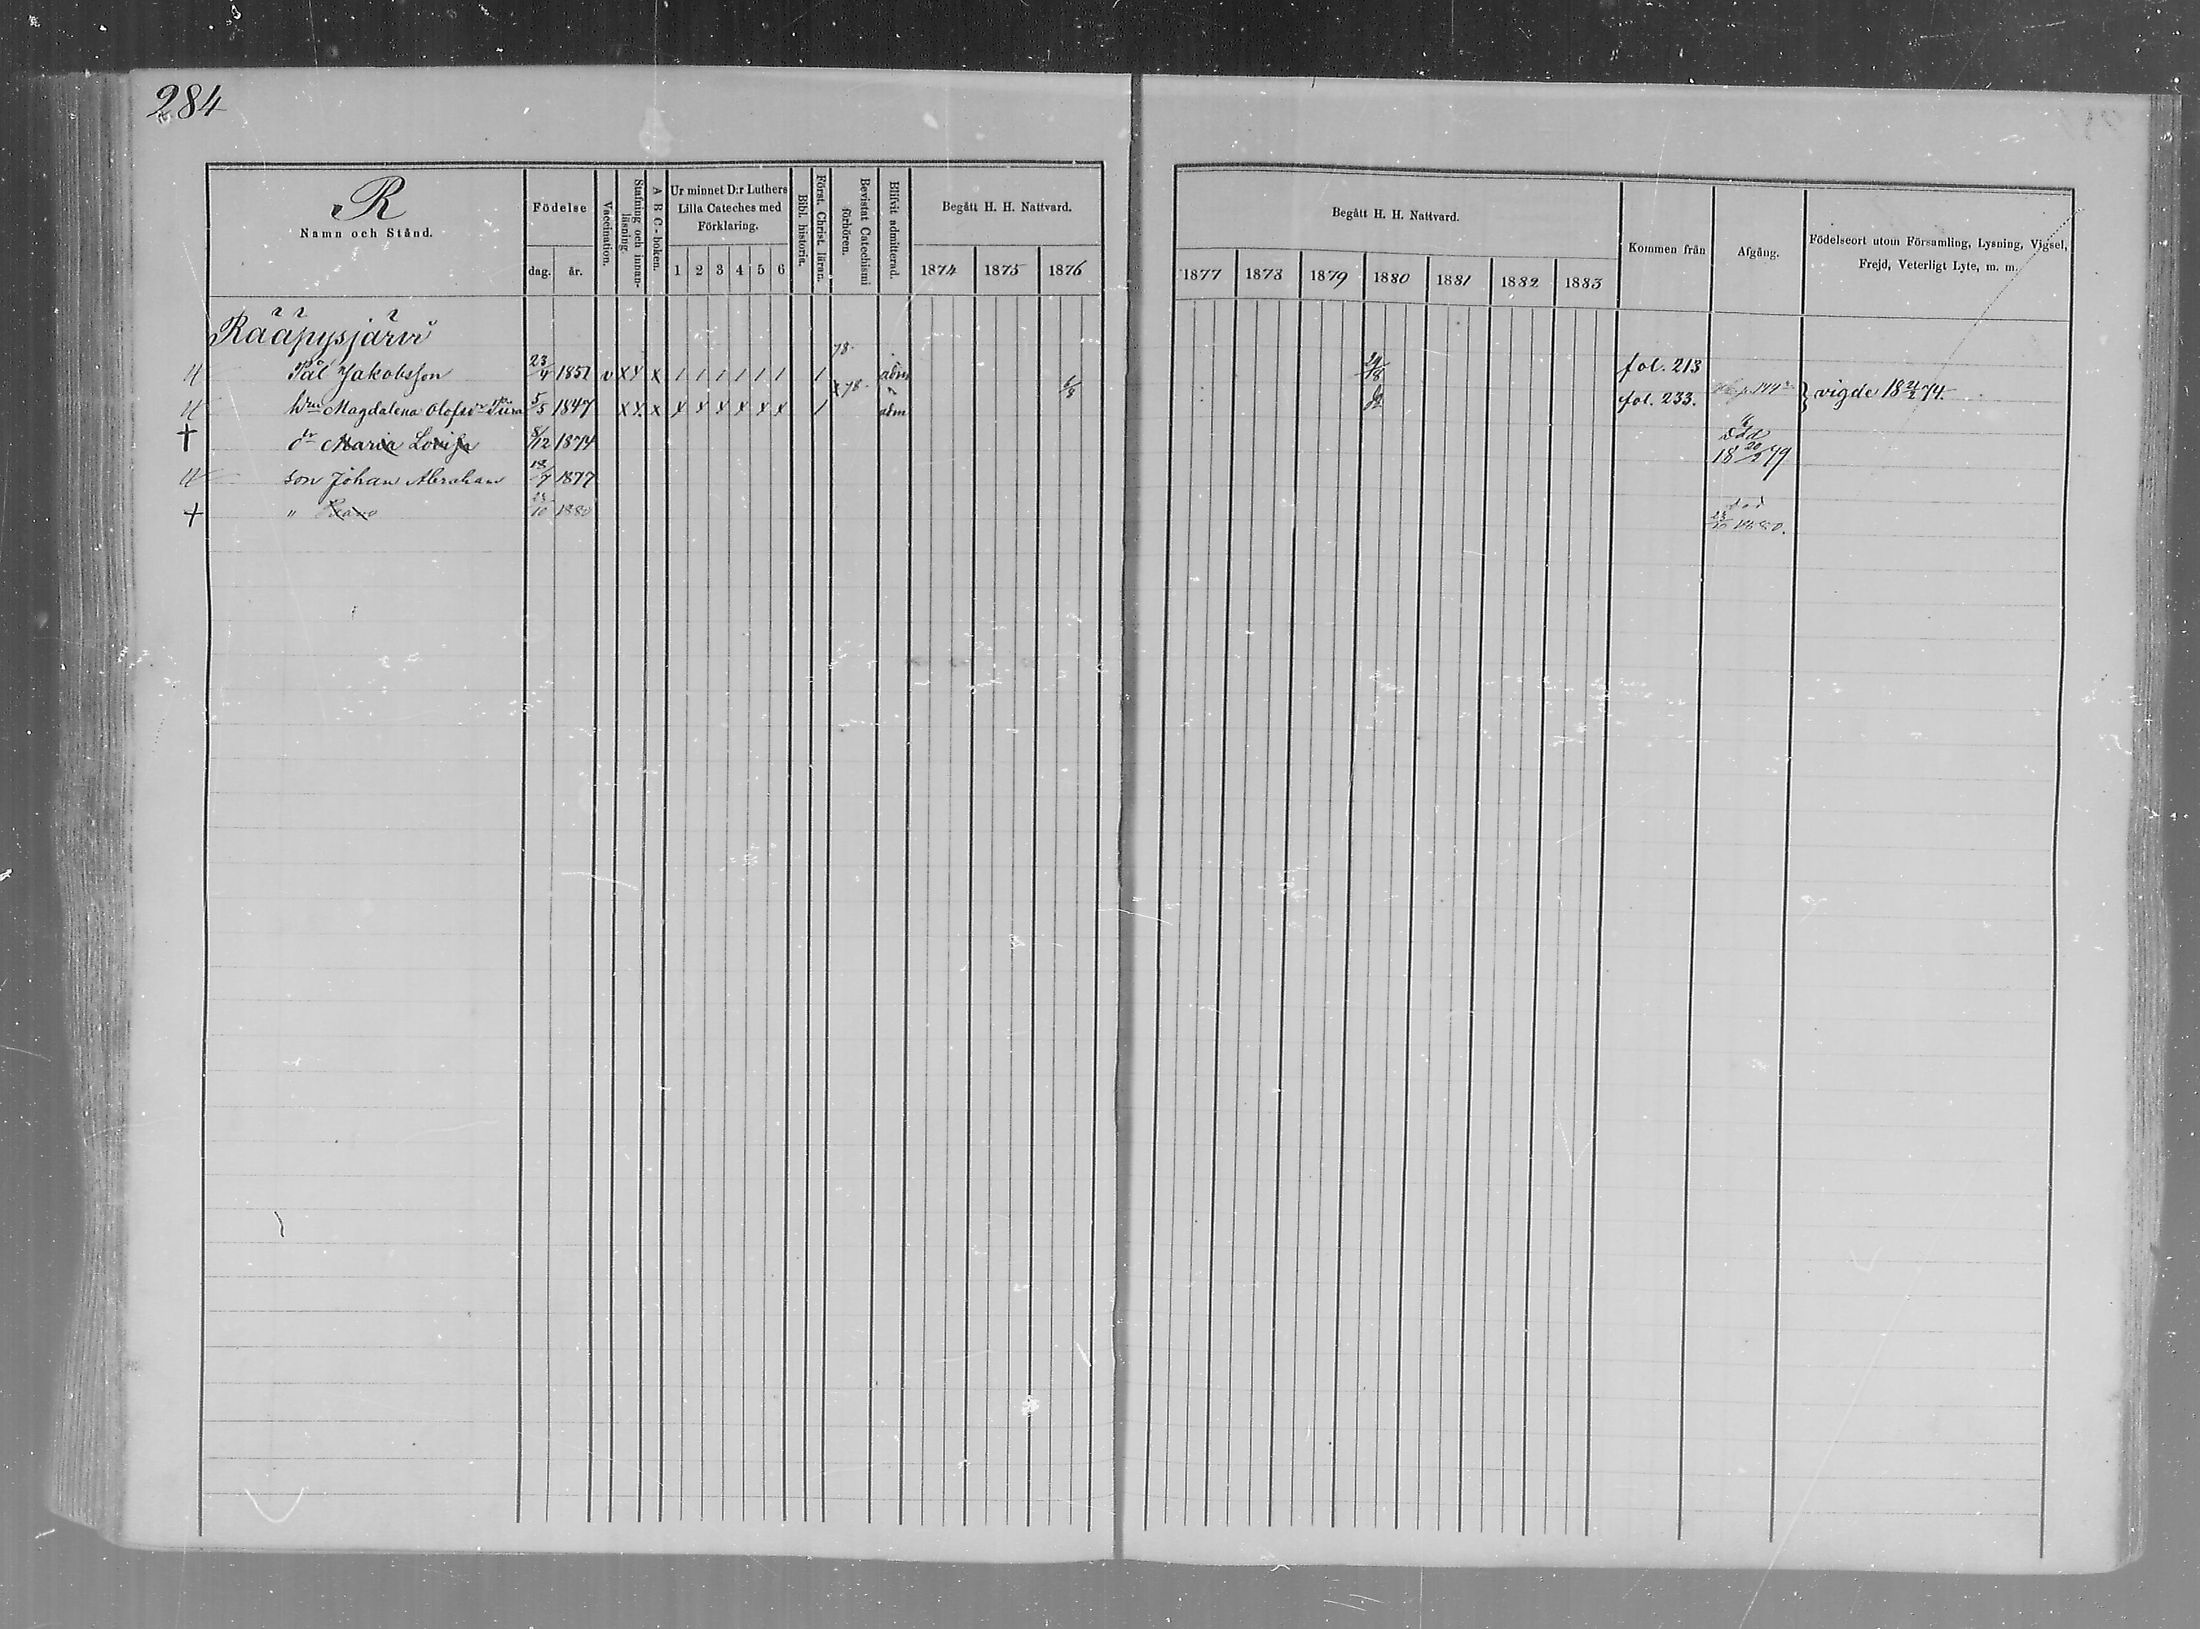 284
R
Namn och Stånd.
Födelse
dag. år.
Vaccination.
Stafning och innanläsning
A B C-boken.
Ur minnet D:r Luthers Lilla Cateches med Förklaring.
1 2 3 4 5 6
Bibl. historia.
Först. Christ. läran.
Bevistat Catechismi förhören.
Blifvit admitterad.
Begått H. H. Nattvard.
1874 1875 1876
Begått H. H. Nattvard.
1877 1878 1879 1880 1881 1882 1883
Kommen från
Afgång.
Födelseort utom Församling, Lysning, Vigsel, Frejd, Veterligt Lyte, m. m.
Rääpysjärvi
78
Pål Jakobsson 23/4 1851 v x x x / / / / / / / adm 24/18 fol. 213
hru Magdalena Olofsdr 5/5 1847 x x x x x x x x x / x 78 adm 6/8 fol. 233. } vigde 18 21/2 74.
† dr Maria Lovisa 8/12 1874 död 18 20/2 79
son Johan Abraham 18/7 1877
† " 23/10 1880 död 23/10 1880.